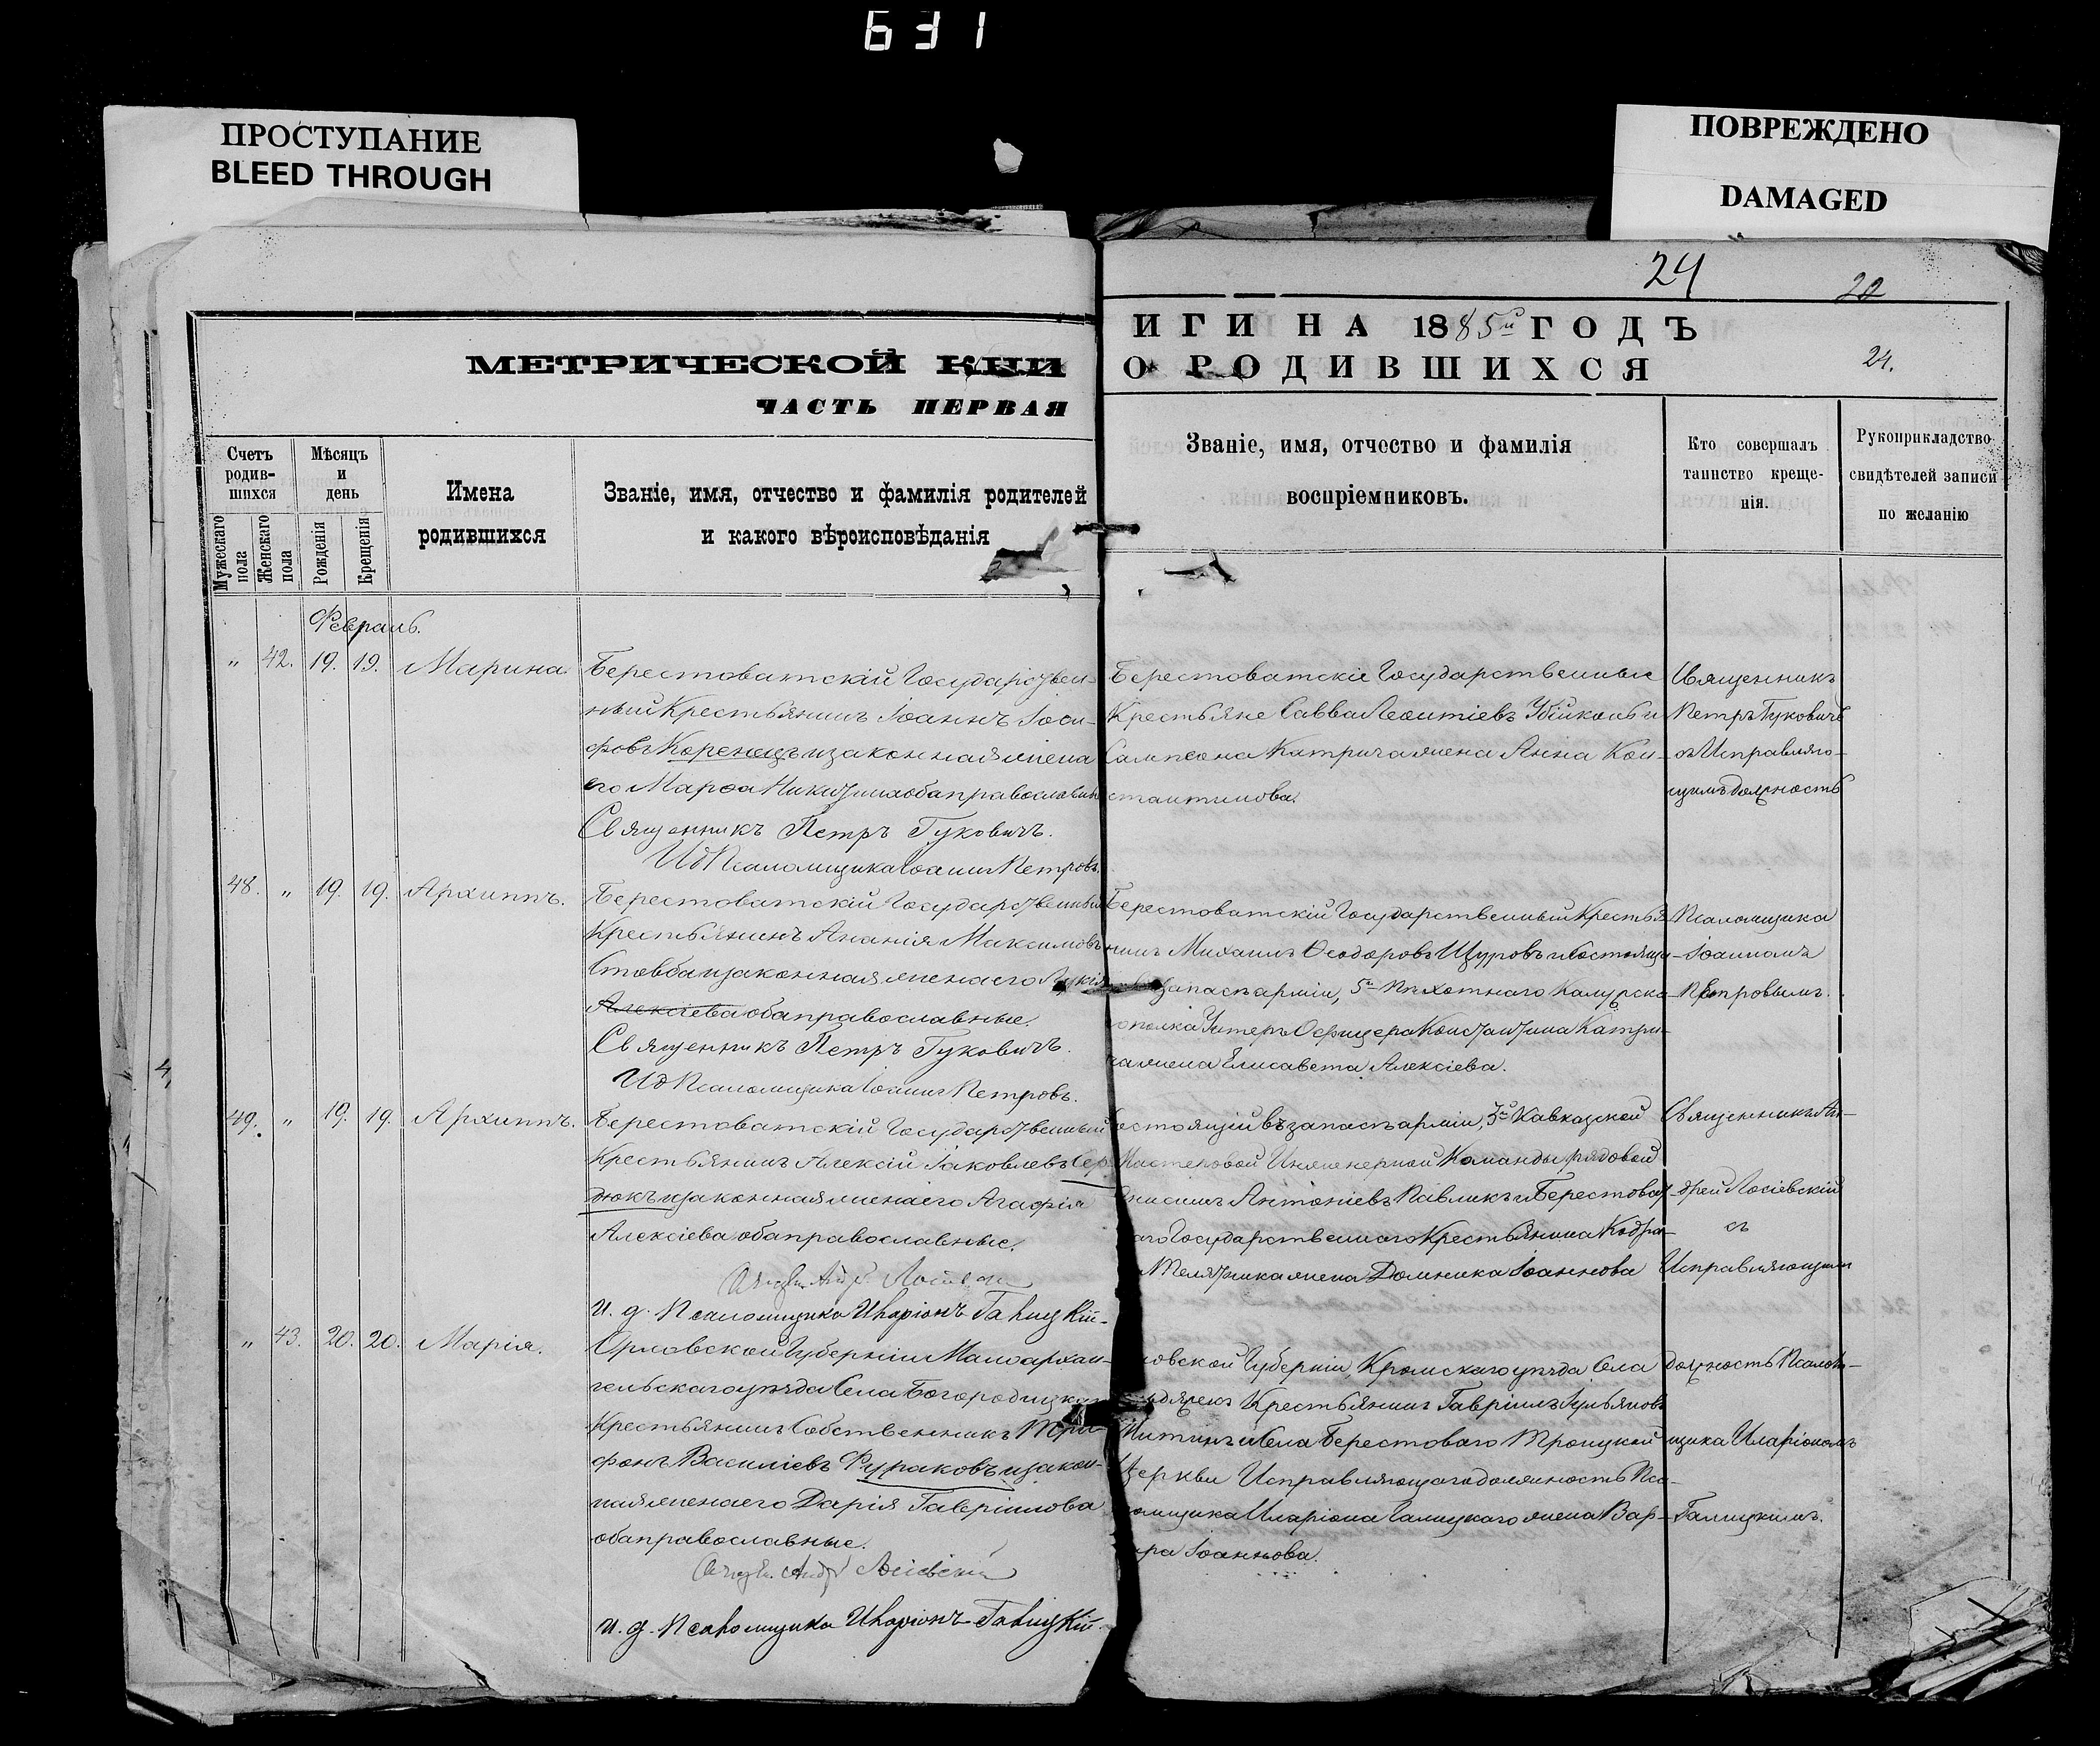 631
ПРОСТУПАНИЕ
BLEED THROUGH
ПОВРЕЖДЕНО
DAMAGED
24
22
24.
МЕТРИЧЕСКОЙ КНИ
ИГИ НА 1885й ГОДЪ
ЧАСТЬ ПЕРВАЯ
О РОДИВШИХСЯ
Счетъ родив-шихся
Мужескаго пола
Женскаго пола
Мѣсяцъ и день
Рожденія
Крещенія
Имена родившихся
Званіе, имя, отчество и фамилія родителей
и какого вѣроисповѣданія
Званіе, имя, отчество и фамилія
воспріемниковъ.
Кто совершалъ
таинство креще-
нія.
Рукоприкладство
свидѣтелей записи
по желанію
Февраль.
" 42. 19. 19. Марина
Берестоватскій Государствен-
ный Крестьянинъ Іоаннъ Іоси-
фовъ Коренецъ и законная жена
его Марѳа Никитина оба православн
Священникъ Петръ Гуковичъ.
Ид Псаломщика Іоаннъ Петровъ.
Берестоватскіе Государственные
Крестьяне Савва Леонтіевъ и
Сампсона Катрича жена Анна Кон-
стантинова.
Священникъ
Петръ Гуковичъ
съ Исправляю-
щимъ должность
48. " 19. 19. Архиппъ.
Берестоватскій Государственный
Крестьянинъ Ананія Максимовъ
Стовба и законная жена его Лукія
Алексіева оба православные.
Священникъ Петръ Гуковичъ.
Ид Псаломщика Іоаннъ Петровъ.
Берестоватскій Государственный Крестья
нинъ Михаилъ Ѳеодоровъ Щуровъ и Состоящ
запасѣ арміи, 5го Пѣхотнаго Калужска
го полка Унтеръ Офицера Константина Катри-
ча жена Елисавета Алексіева.
Псаломщика
Іоанномъ
Петровымъ.
49. " 19. 19. Архиппъ.
Берестоватскій Государственный
Крестьянинъ Алексій Іаковлевъ Сер
дюкъ и законная жена его Агафія
Алексіева оба православные.
и. д. Псаломщика Иларіонъ Галицкій.
остоящій въ запасѣ арміи, 3й Кавказской
Мастеровой Инженерной Команды рядовой
Онисимъ Антоніевъ Павликъ и Берестоват
аго Государственнаго Крестьянина Кодра-
жена Домника Іоаннова
Священникъ Ан-
дрей Лосіевскій
съ
Исправляющимъ
" 43. 20. 20. Марія.
Орловской Губерніи Малоархан-
гельскаго уѣзда Села Богородицкаго
Крестьянинъ Собственникъ Три-
фонъ Василіевъ Фураковъ и закон-
ная жена его Дарія Гавріилова
оба православные.
Священ. Андр. Лосіевскій
и. д. Псаломщика Иларіонъ Галицкій.
ловской Губерніи, Кромскаго уѣзда Села
Крестьянинъ Гавріилъ
Митинъ и Села Берестоваго Троицкой
Церкви Исправляющаго должность Пса-
ломщика Иларіона Галицкаго жена Вар-
ара Іоаннова.
должность Псалом-
щика Иларіономъ
Галицкимъ.